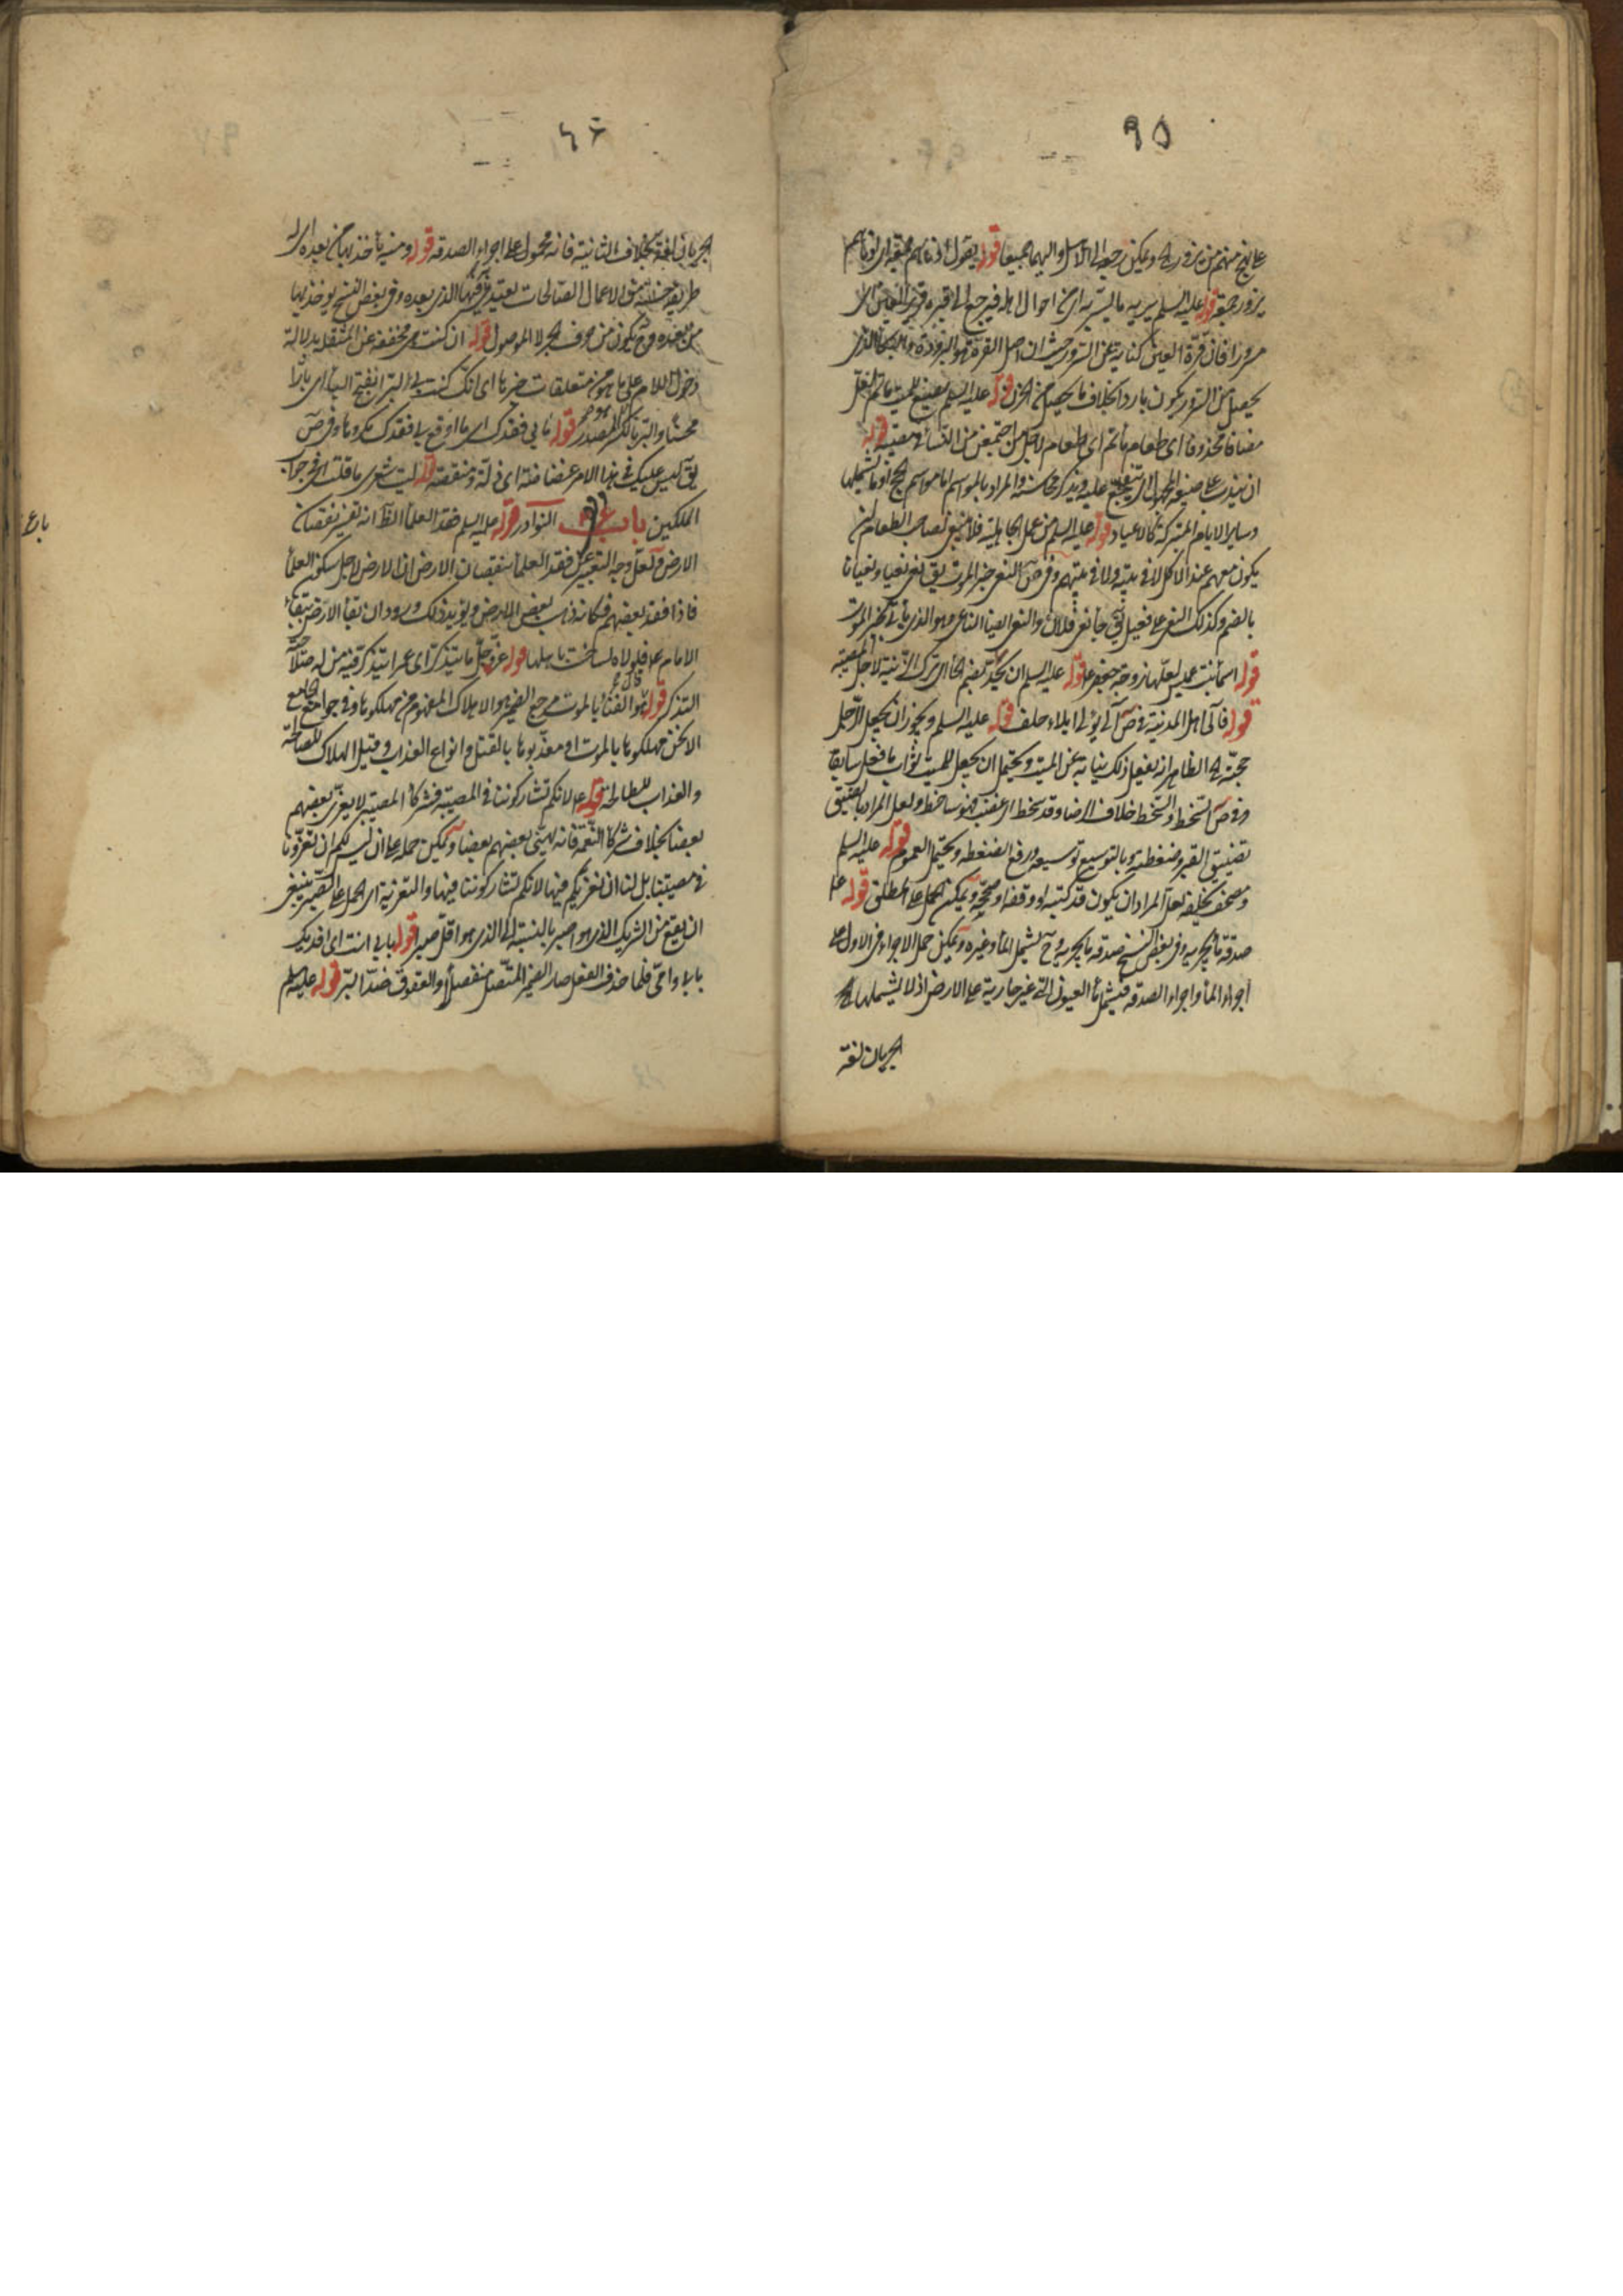 ٩٥
يزور جمعة قوله عليه السلم يريه ما يسر به اى من احوال اهله فيرجع الى قبره قرير العين اى
مسرورا فان قرة العين كناية عن السرور حيث ان اصل القرة هو البرودة والبكاء الذى
يحصل من السرور يكون باردا بخلاف ما يحصل من الحزن قوله عليه السلم يصنع للميت ماتم لعل
مضافا محذوفا اى طعام ماتم اى طعام لاجل من اجتمعن من النساء فى مصيبة قوله
وساير الايام المتبركة كالاعياد قوله عليه السلم من عمل الجاهلية فلا ينبغى لصاحب الطعام ان
يكون معهم عند الاكل لا فى بيته ولا فى بيتهم وفى ص النعى خبر الموت يق نعى نعيا ونعيانا
بالضم وكذلك النعى على فعيل يق جاء نعى فلان والنعى ايضا الناعى وهو الذى يأتى بخبر الموت
قوله اسماء بنت عميس لعلها زوجة جعفر ع قوله عليه السلم ان تحد بضم الحاء اى ترك الزينة لاجل المصيبة
قوله فآلى اهل المدينة فى ص آلى يؤلى ايلاء حلف قوله عليه السلم ويجوز ان يجعل الرجل
حجته الظاهر انه يفعل ذلك نيابة عن الميت ويحتمل ان يجعل للميت ثواب ما فعل سابقا
وفى ص السخط والسخط خلاف الرضا وقد سخط اى غضب فهو ساخط ولعل المراد بالضيق
تضييق القبر وضغطته وبالتوسيع توسيعه ورفع الضغطه ويحتمل العموم قوله عليه السلم
ومصحف يخلفه لعل المراد ان يكون قد كتبه او وقفه او صححه ويمكن الحمل على المطلق قوله ع
صدقة ماء يجريه وفى بعض النسخ صدقه ما يجريه وح يشمل الماء وغيره ويمكن حمل الاجراء فى الاول على
اجراء الماء واجراء الصدقه فيشمل ماء العيون التى غير جارية على الارض اذ لا يشملها
الجريان لغة
٩٦
الجريان لغة بخلاف الثانية فانه محمول على اجراء الصدقه قوله وسنة يأخذ بها من بعده اى
طريقة حسنة من الاعمال الصالحات يعتد بها الذى بعده وفى بعض النسخ يوخذ بها
من بعده وح يكون من حرف الجر لا الموصول قوله ان كنت هى مخففه عن المثقله بدلالة
دخول اللام على ما هو من متعلقات خبرها اى انك كنت بى البرا بفتح الباء اى بارا
محسنا والبر بالكسر المصدر قوله ما بى فقدك اى ما اوقع بى فقدك مكروها وفى ص
يق ليس عليك فى هذا الامر غضاضة اى ذلة ومنقصة قوله ليت شعرى ما قلت اى فى جواب
الملكين باب النوادر قوله عليه السلم فقد العلماء الظ انه تفسير نقصان
الارض ولعل وجه التعبير عن فقد العلماء بنقصان الارض ان الارض لاجل سكون العلماء
فاذا فقد بعضهم فكانه ذهب بعض الارض ويؤيد ذلك ورود ان بقاء الارض ببقاء
الامام ع فلولاه لساخت باهلها قوله عز وجل ما يتذكر اى عمرا يتذكر فيه من له صلاحية
التذكر قوله هو الفناء بالموت مرجع الضمير هو الاهلاك المفهوم من مهلكوها وفى جوامع الجامع
الا نحن مهلكوها بالموت او معذبوها بالقتل وانواع العذاب وقيل الهلاك للصالحة
والعذاب للطالحة قوله ع لانكم تشاركوننا فى المصيبة فشركاء المصيبة لا يعزى بعضهم
بعضا بخلاف شركاء النعمة فانه يهنى بعضهم بعضا ويمكن حمله على ان ليس لكم ان تعزونا
فى مصيبتنا بل لنا ان نعزيكم فيها لانكم تشاركوننا فيها والتعزية اى الحمل على الصبر ينبغى
ان يقع من الشريك الذى هو اصبر بالنسبة الى الذى هو اقل صبرا قوله بابى انت اى افديك
بابى وامى فلما حذف الفعل صار الضمير المتصل منفصلا والعقوق ضد البر قوله عليه السلم